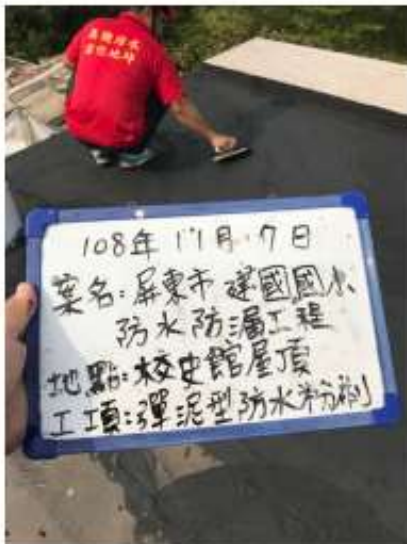 108年11月7日
案名:屏東市建國國小
防水防漏工程
地點:校史館屋頂
工項:彈泥型防水粉刷